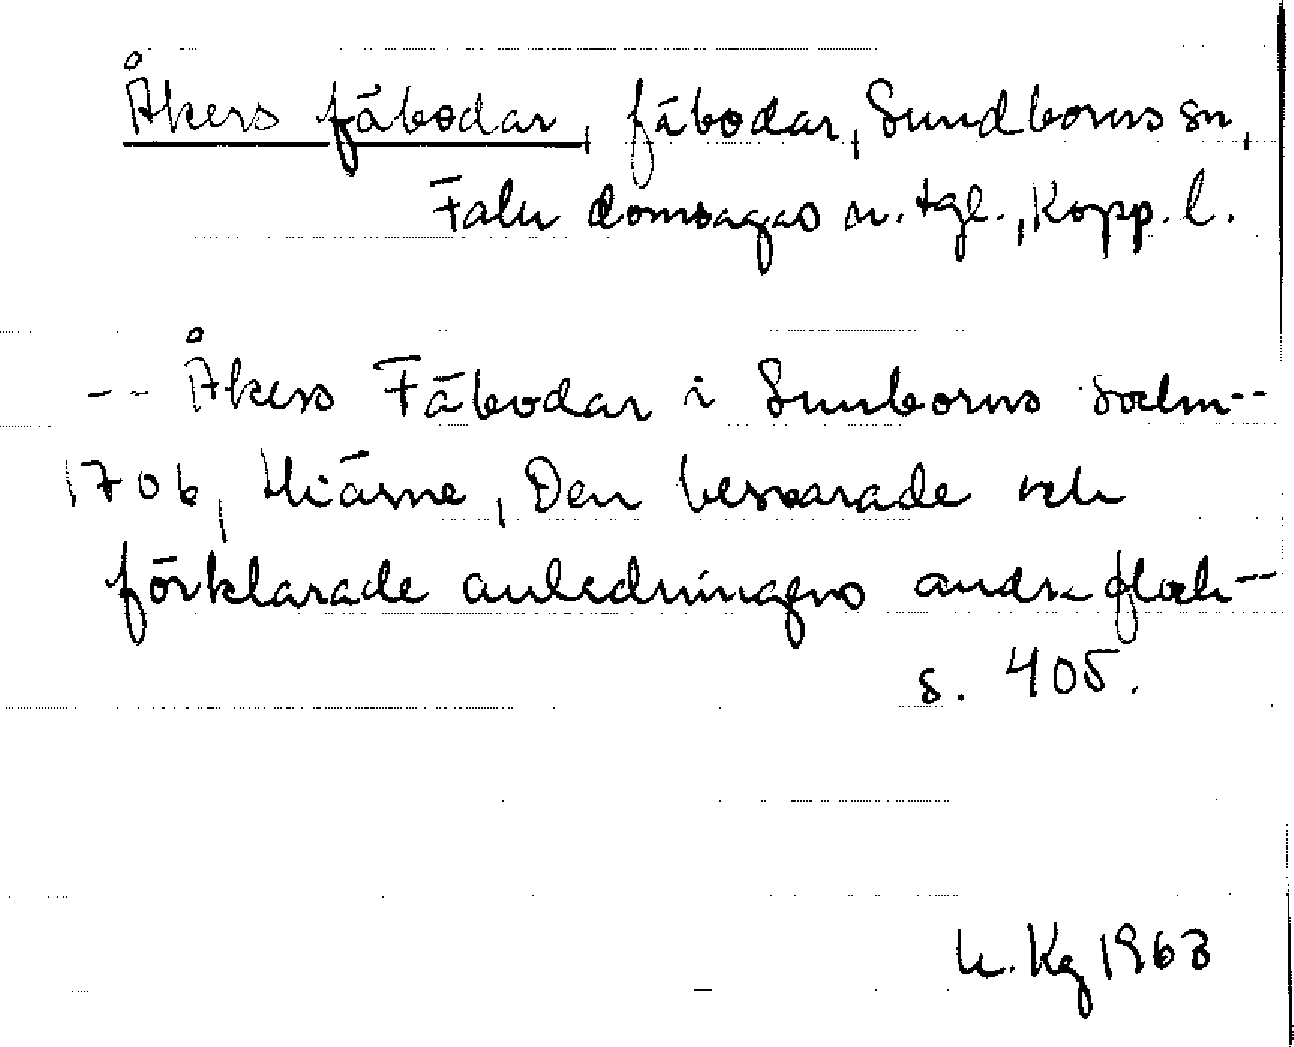 Åkers fäbodar, fäbodar, Sundborns sn,
Falu domsagas n. tgl., Kopp. l.
-- Åkers Fäbodar i Sunborns Sokn--
1706, Hiärne, Den beswarade och
förklarade anledningens andra flock--
s. 405.
K. Kg 1963